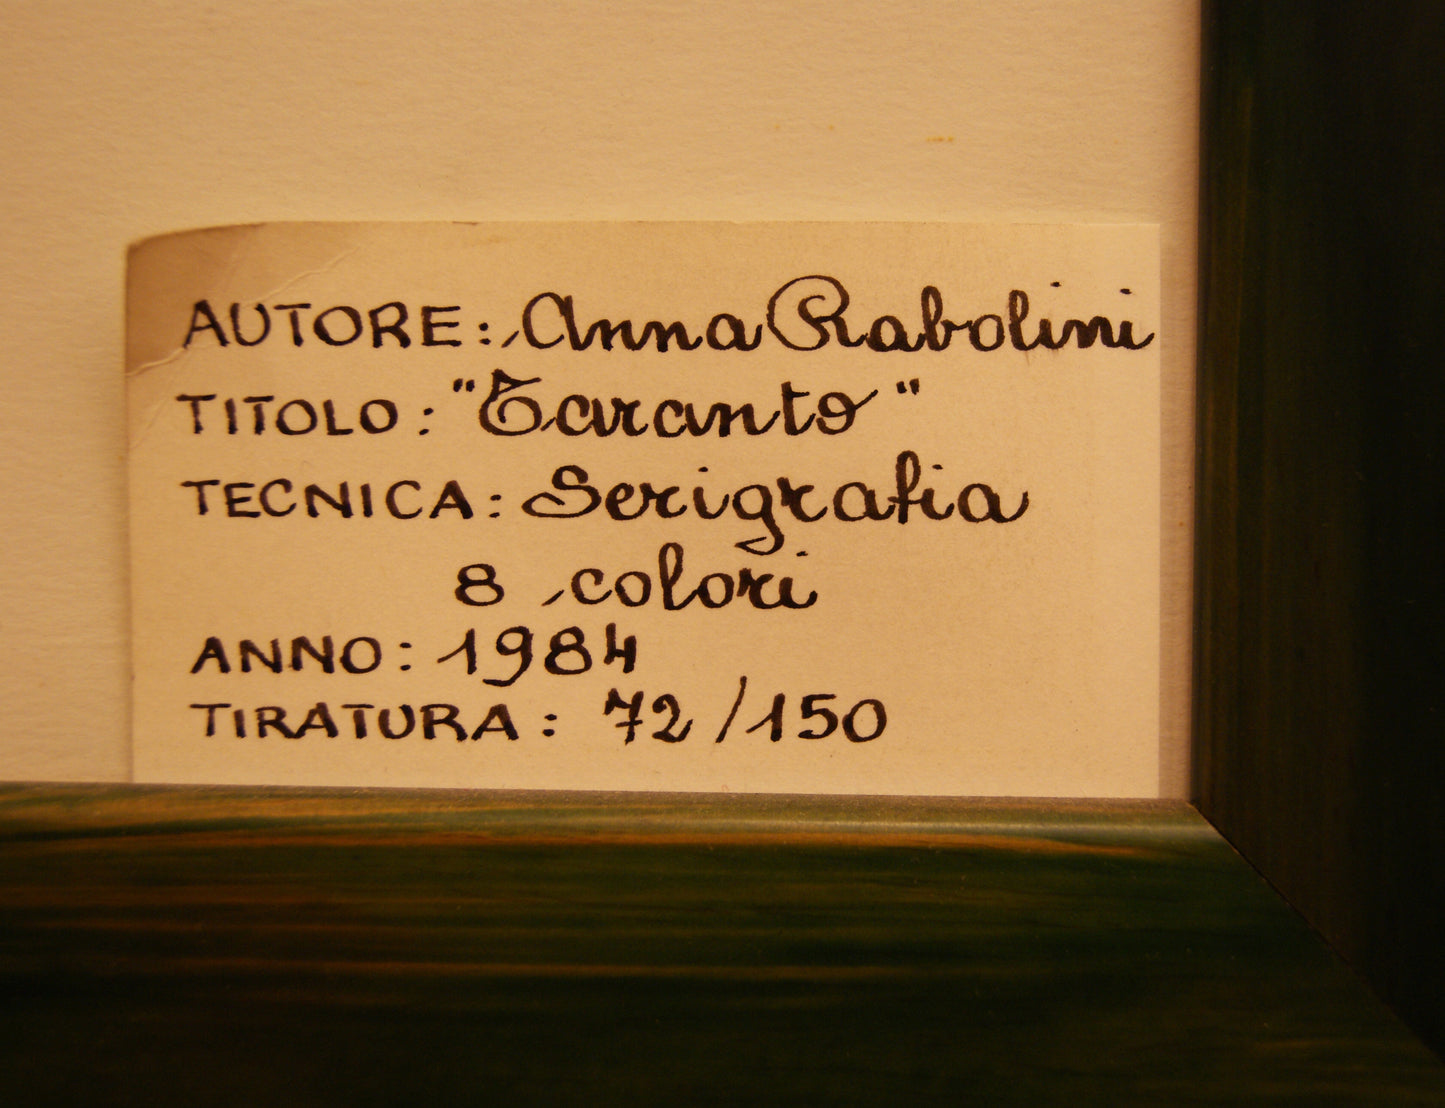 AUTORE: Anna Rabolini
TITOLO: "Taranto"
TECNICA: Serigrafia
8 colori
ANNO: 1984
TIRATURA: 72/150